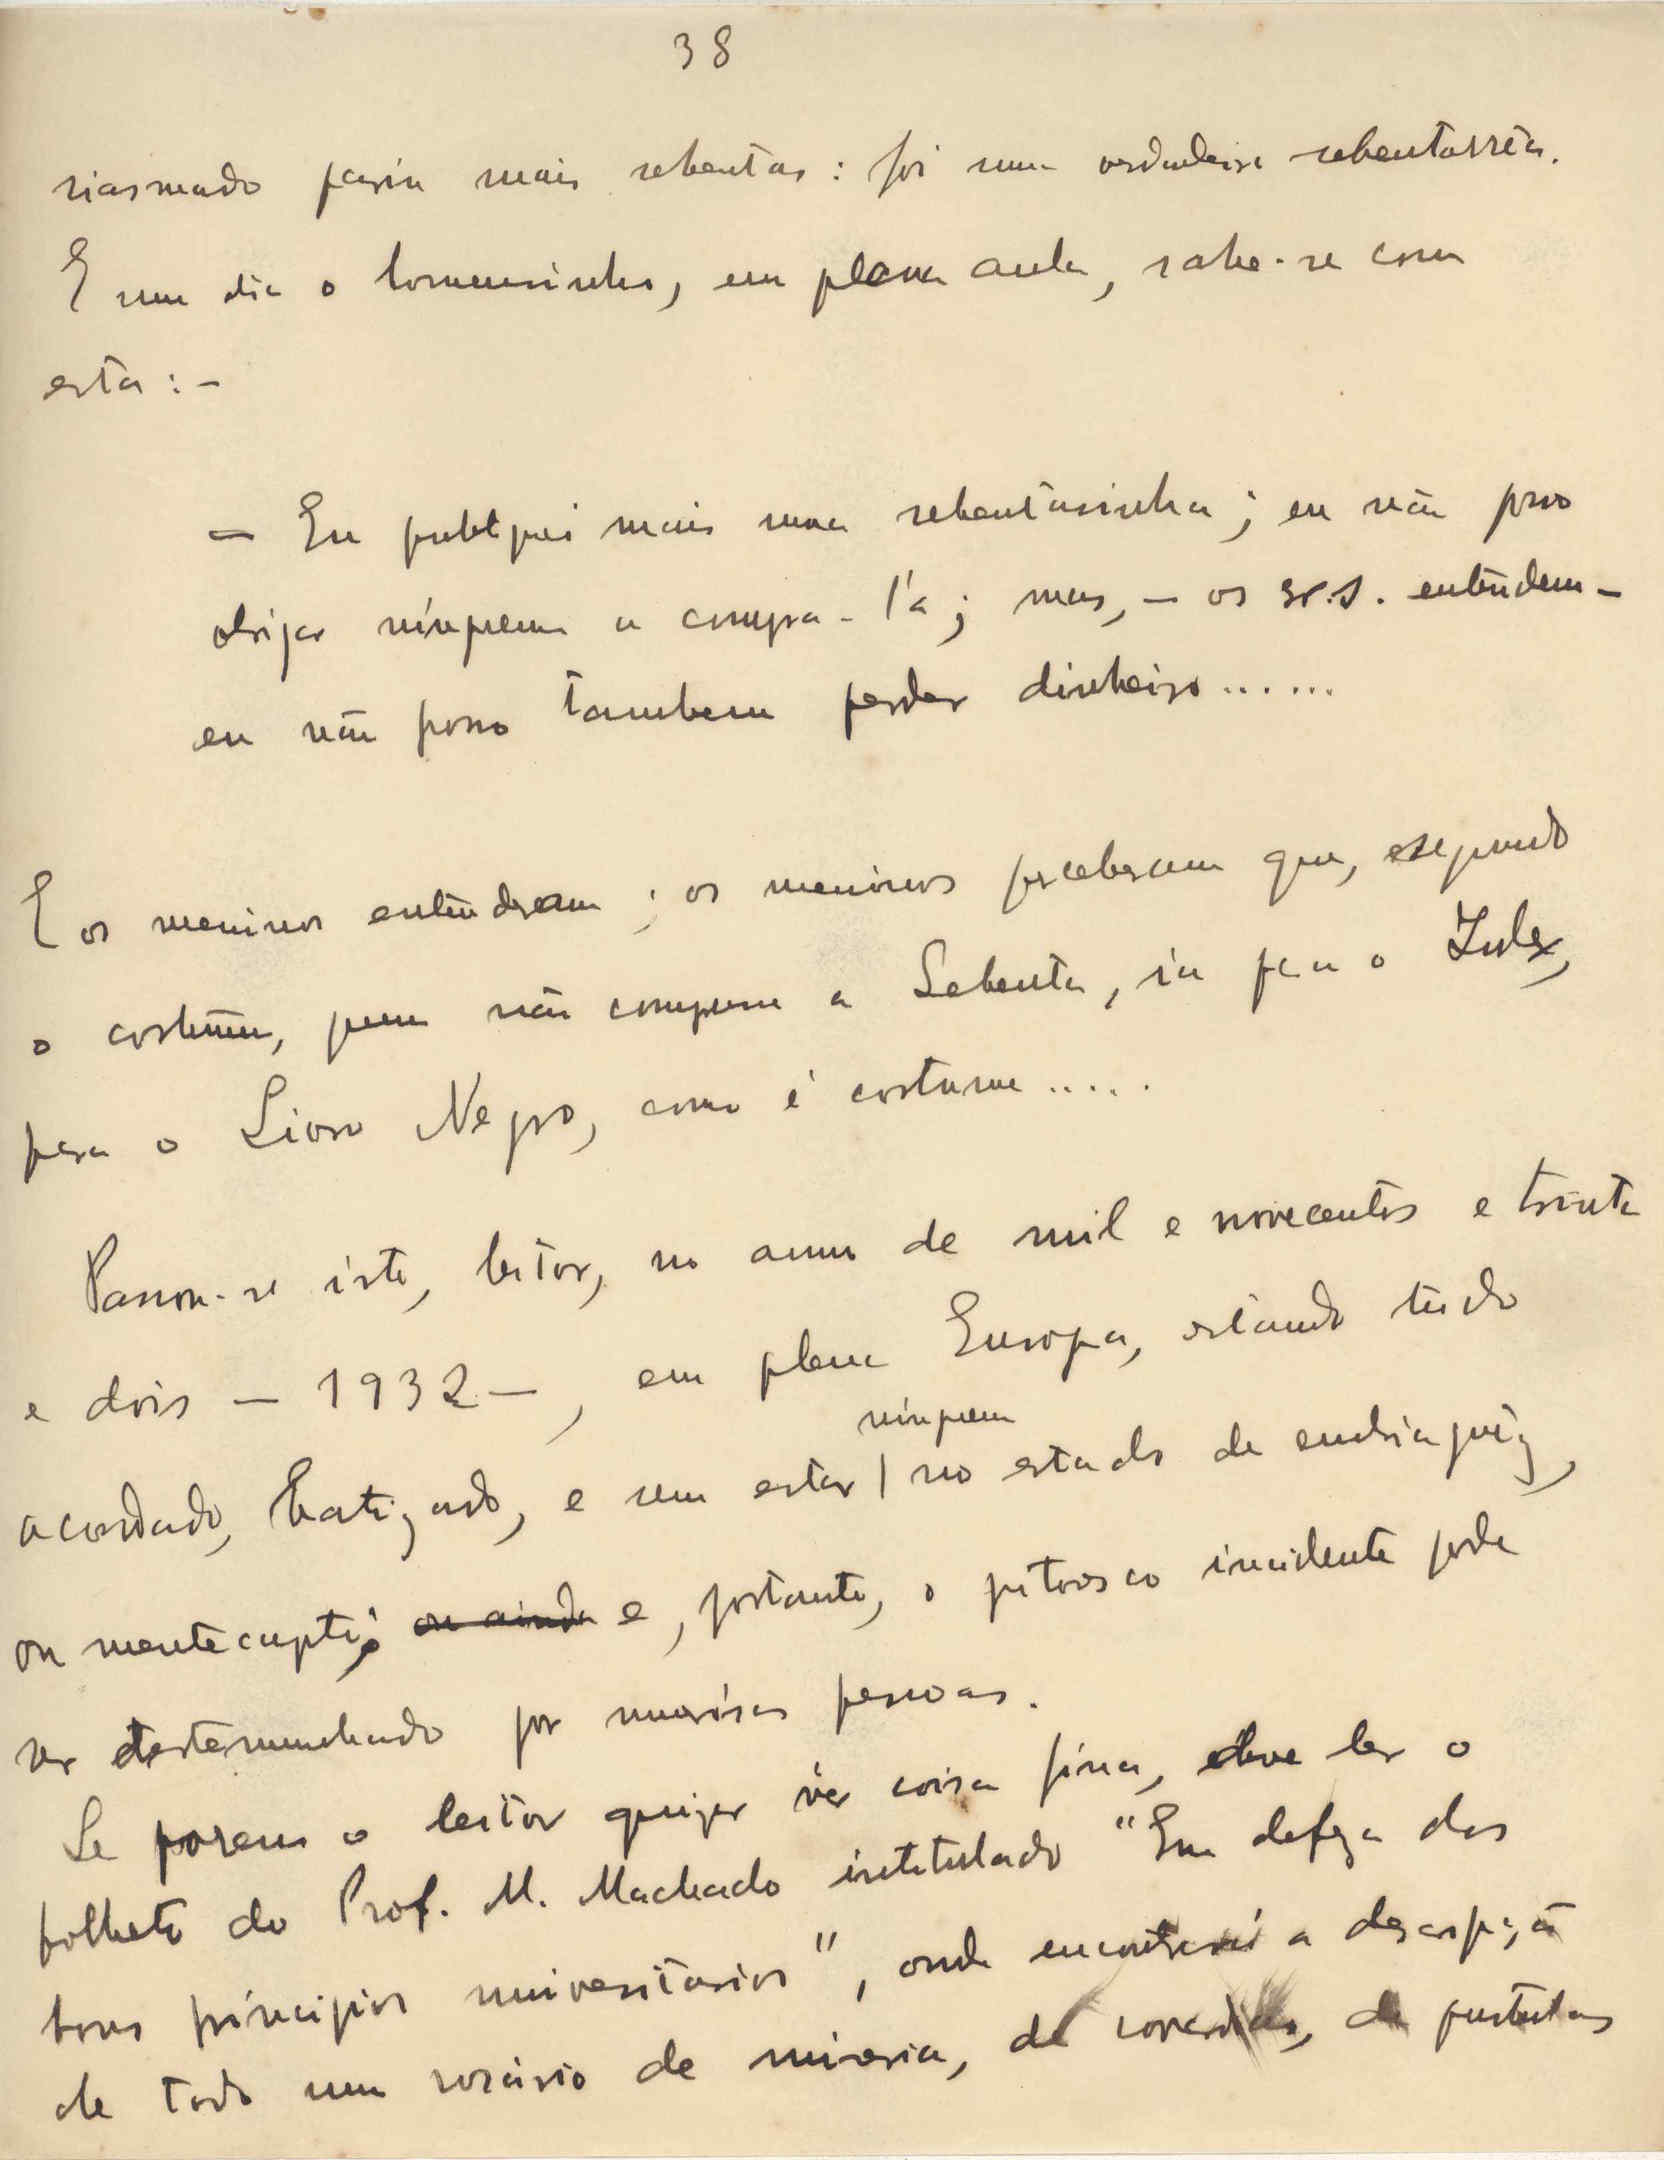 38
siasmado fazia mais sebentas: foi uma verdadeira sebentorreia.
E um dia o homensinho, em plena aula, sahe-se com
esta: -
- Eu publiquei mais uma sebentasinha; eu não posso
obrigar ninguem a compra-l'a; mas, - os sr.s. entendem -
eu não posso tambem perder dinheiro......
E os meninos entenderam; os meninos perceberam que, segundo
o costume, quem não comprava a Sebenta, ia para o Index,
para o Livro Negro, como é costume.....
Passou-se isto, leitor, no anno de mil e novecentos e trinta
e dois - 1932 -, em plena Europa, estando tudo
ninguem
acordado, batizado, e sem estar | no estado de embriaguêz,
ou mentecapto; ou ainda e, portanto, o pitoresco incidente pode
ser testemunhado por muitas pessoas.
Se porem o leitor quizer vêr coisa fina, deve ler o
folheto do Prof. M. Machado intitulado "Em defeza dos
bons principios universitarios", onde encontrará a descripção
de todo um rosário de miseria, de cobardias, de pustulas